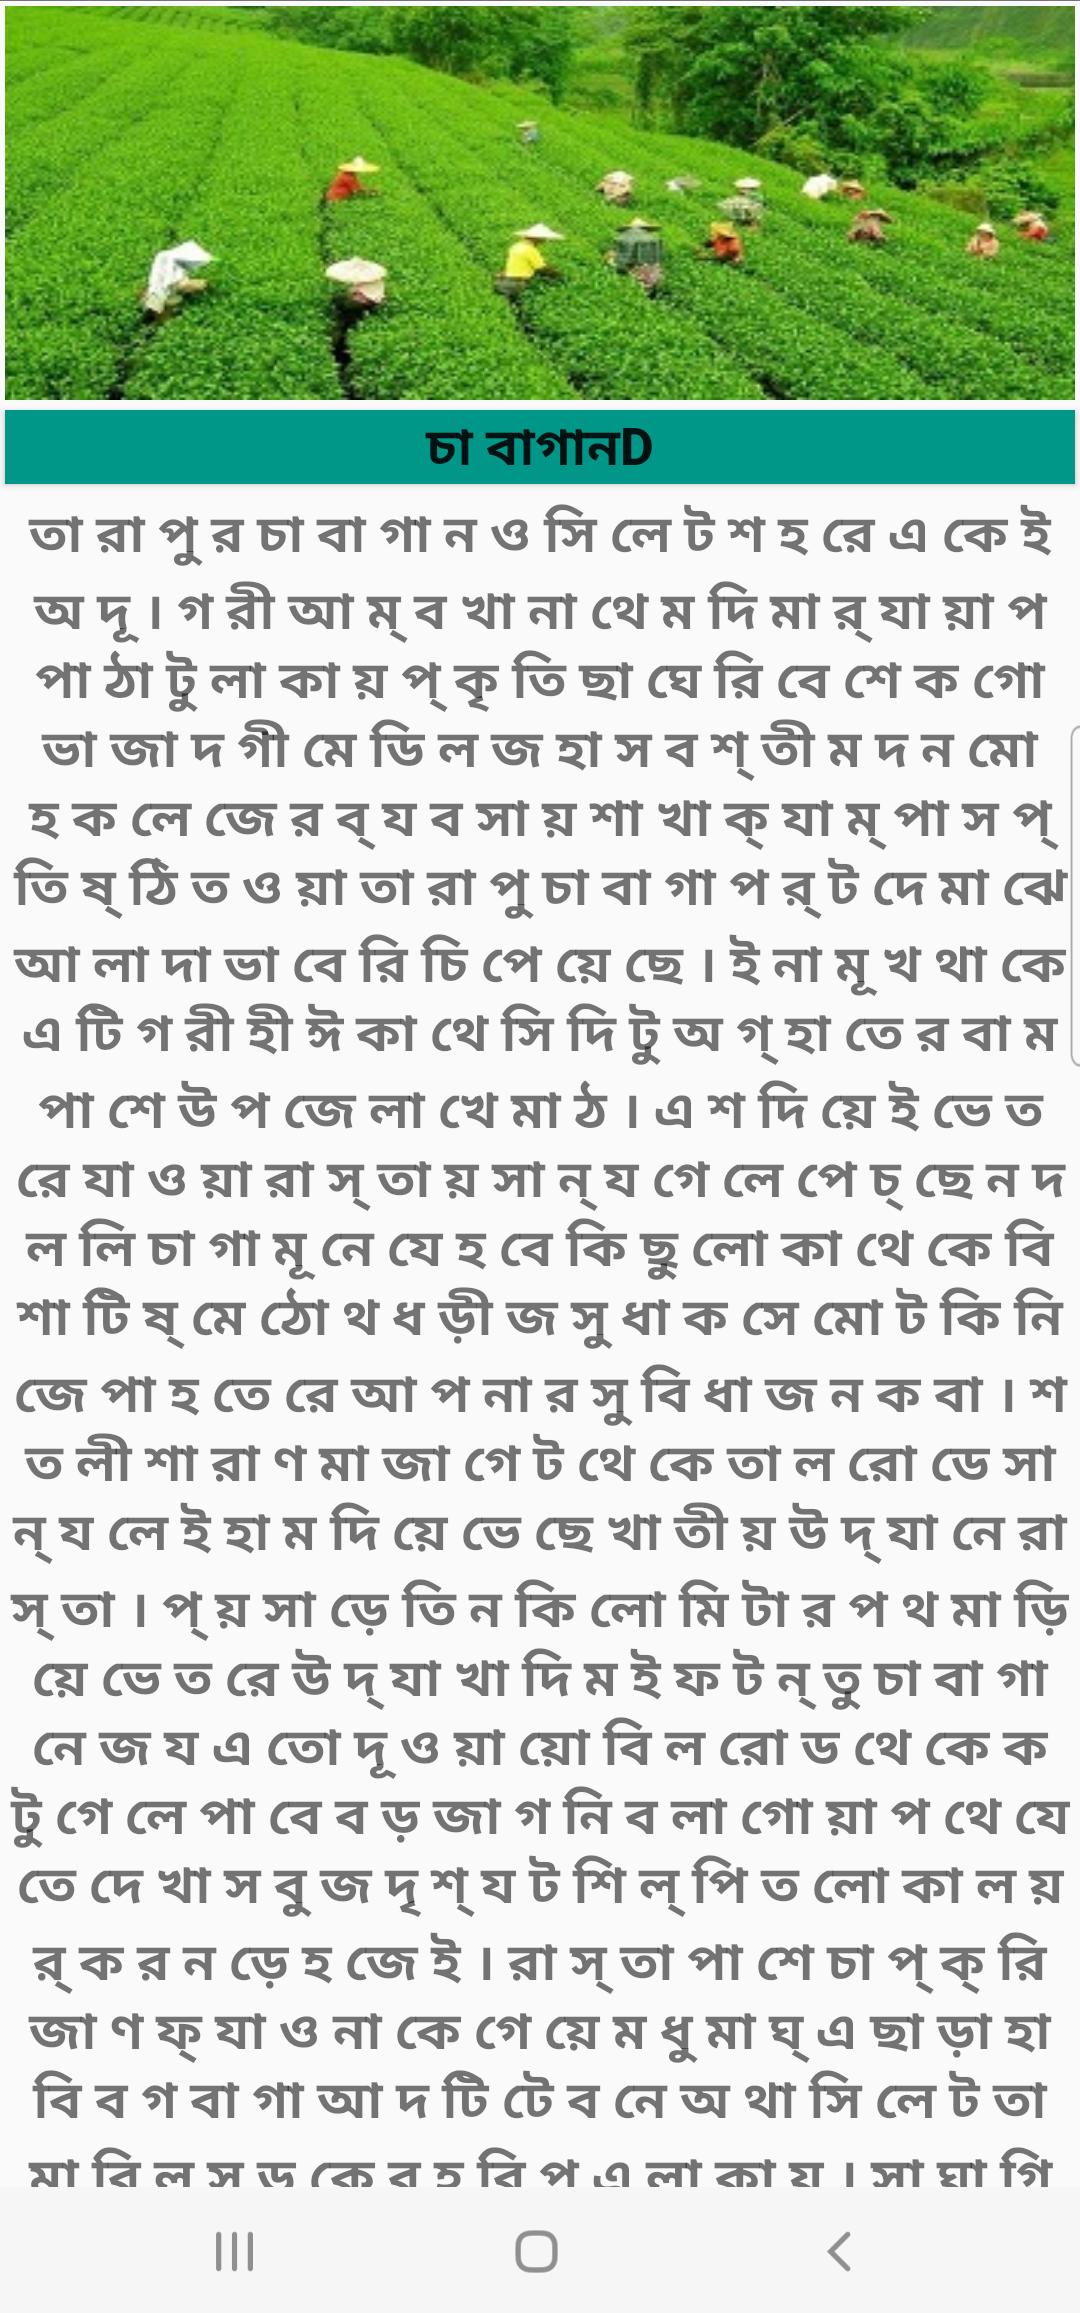 চা বাগানD
তা রা পু র চা বা গা ন ও সি লে ট শ হ রে এ কে ই
অ দূ । গ রী আ ম্ ব খা না থে ম দি মা র্ যা য়া প
পা ঠা টু লা কা য় প্ কৃ তি ছা ঘে রি বে শে ক গো
ভা জা দ গী মে ডি ল জ হা স ব শ্ তী ম দ ন মো
হ ক লে জে র ব্ য ব সা য় শা খা ক্ যা ম্ পা স প্
তি ষ্ ঠি ত ও য়া তা রা পু চা বা গা প র্ ট দে মা ঝে
আ লা দা ভা বে রি চি পে য়ে ছে । ই না মূ খ থা কে
এ টি গ রী হী ঈ কা থে সি দি টু অ গ্ হা তে র বা ম
পা শে উ প জে লা খে মা ঠ । এ শ দি য়ে ই ভে ত
রে যা ও য়া রা স্ তা য় সা ন্ য গে লে পে চ্ ছে ন দ
ল লি চা গা মূ নে যে হ বে কি ছু লো কা থে কে বি
শা টি ষ্ মে ঠো থ ধ ড়ী জ সু ধা ক সে মো ট কি নি
জে পা হ তে রে আ প না র সু বি ধা জ ন ক বা । শ
ত লী শা রা ণ মা জা গে ট থে কে তা ল রো ডে সা
ন্ য লে ই হা ম দি য়ে ভে ছে খা তী য় উ দ্ যা নে রা
স্ তা । প্ য় সা ড়ে তি ন কি লো মি টা র প থ মা ড়ি
য়ে ভে ত রে উ দ্ যা খা দি ম ই ফ ট ন্ তু চা বা গা
নে জ য এ তো দূ ও য়া য়ো বি ল রো ড থে কে ক
টু গে লে পা বে ব ড় জা গ নি ব লা গো য়া প থে যে
তে দে খা স বু জ দৃ শ্ য ট শি ল্ পি ত লো কা ল য়
র্ ক র ন ড়ে হ জে ই । রা স্ তা পা শে চা প্ ক্ রি
জা ণ ফ্ যা ও না কে গে য়ে ম ধু মা ঘ্ এ ছা ড়া হা
বি ব গ বা গা আ দ টি টে ব নে অ থা সি লে ট তা
মা বি ল স ড় কে র হ রি প এ লা কা য় । সা ঘা গি